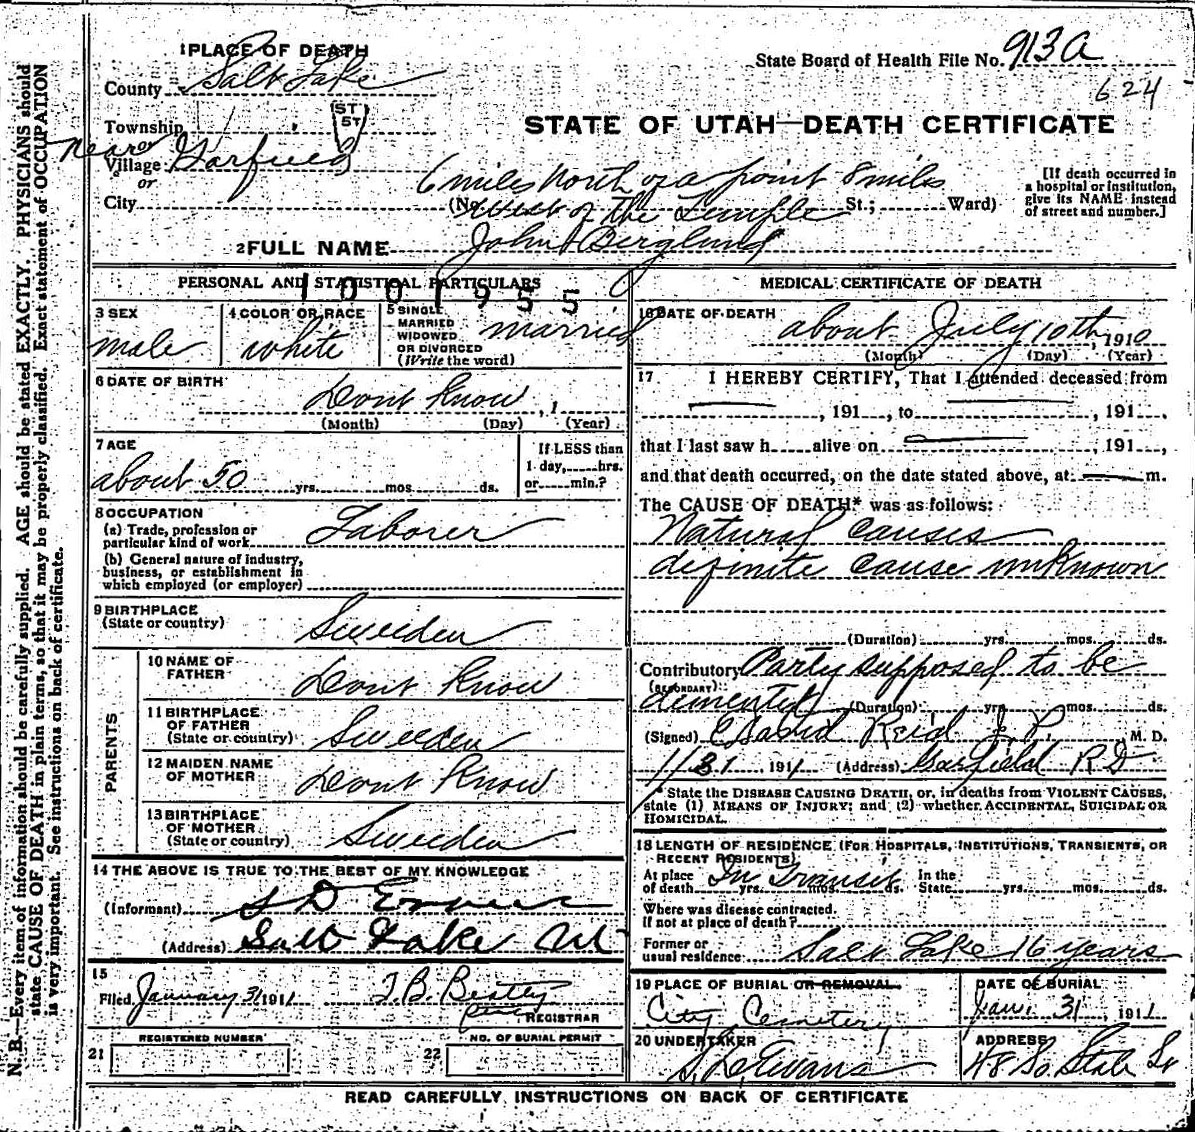 1 PLACE OF DEATH
County Salt Lake
State Board of Health File No. 913a
624
Township
or
near Village Garfield
or
City
ST
5T
STATE OF UTAH—DEATH CERTIFICATE
6 miles north of a point 8 miles
(No. west of the Temple St.; Ward)
[If death occurred in
a hospital or institution,
give its NAME instead
of street and number.]
2 FULL NAME John Berglund
PERSONAL AND STATISTICAL PARTICULARS
1001955
3 SEX
male
4 COLOR OR RACE
white
5 SINGLE
MARRIED
WIDOWED
OR DIVORCED
(Write the word)
married
6 DATE OF BIRTH
Dont Know, 1
(Month) (Day) (Year)
7 AGE
about 50 yrs. mos. ds.
If LESS than
1 day, hrs.
or min.?
8 OCCUPATION
(a) Trade, profession or
particular kind of work Laborer
(b) General nature of industry,
business, or establishment in
which employed (or employer)
9 BIRTHPLACE
(State or country) Sweeden
PARENTS
10 NAME OF
FATHER Dont Know
11 BIRTHPLACE
OF FATHER
(State or country) Sweeden
12 MAIDEN NAME
OF MOTHER Dont Know
13 BIRTHPLACE
OF MOTHER
(State or country) Sweeden
14 THE ABOVE IS TRUE TO THE BEST OF MY KNOWLEDGE
(Informant) S D Evans
(Address) Salt Lake Ut
15
Filed January 31 1911 T. B. Beatty
REGISTRAR
REGISTERED NUMBER
21
NO. OF BURIAL PERMIT
22
MEDICAL CERTIFICATE OF DEATH
16 DATE OF DEATH
about July 10th, 1910
(Month) (Day) (Year)
17 I HEREBY CERTIFY, That I attended deceased from
, 191 , to , 191 ,
that I last saw h alive on , 191 ,
and that death occurred, on the date stated above, at m.
The CAUSE OF DEATH* was as follows:
Natural causes
definite cause unknown
(Duration) yrs. mos. ds.
Contributory Party supposed to be
(SECONDARY)
demented (Duration) yrs. mos. ds.
(Signed) David Reid J. P., M. D.
1/31, 1911 (Address) Garfield R D
* State the DISEASE CAUSING DEATH, or, in deaths from VIOLENT CAUSES,
state (1) MEANS OF INJURY; and (2) whether ACCIDENTAL, SUICIDAL OR
HOMICIDAL.
18 LENGTH OF RESIDENCE (FOR HOSPITALS, INSTITUTIONS, TRANSIENTS, OR
RECENT RESIDENTS)
At place In Transit In the
of death yrs. mos. ds. State yrs. mos. ds.
Where was disease contracted.
If not at place of death?
Former or
usual residence Salt Lake 16 years
19 PLACE OF BURIAL OR REMOVAL
City Cemetery
DATE OF BURIAL
Jan. 31, 1911
20 UNDERTAKER
S. D. Evans
ADDRESS
48 So. State St
READ CAREFULLY INSTRUCTIONS ON BACK OF CERTIFICATE
N. B.—Every item of information should be carefully supplied. AGE should be stated EXACTLY. PHYSICIANS should
state CAUSE OF DEATH in plain terms, so that it may be properly classified. Exact statement of OCCUPATION
is very important. See instructions on back of certificate.